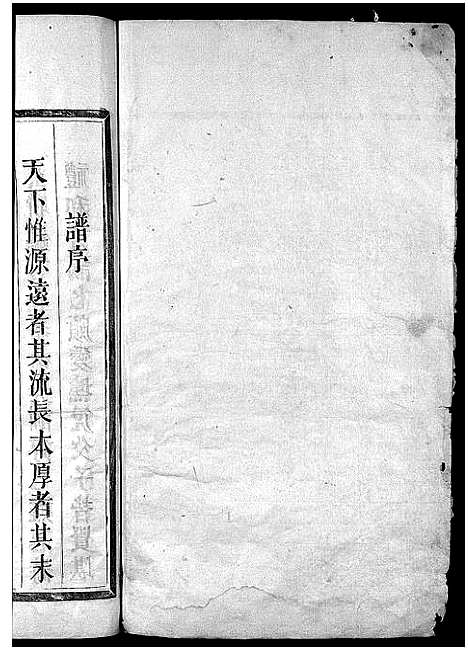 譜序
天下惟源遠者其流長本厚者其末